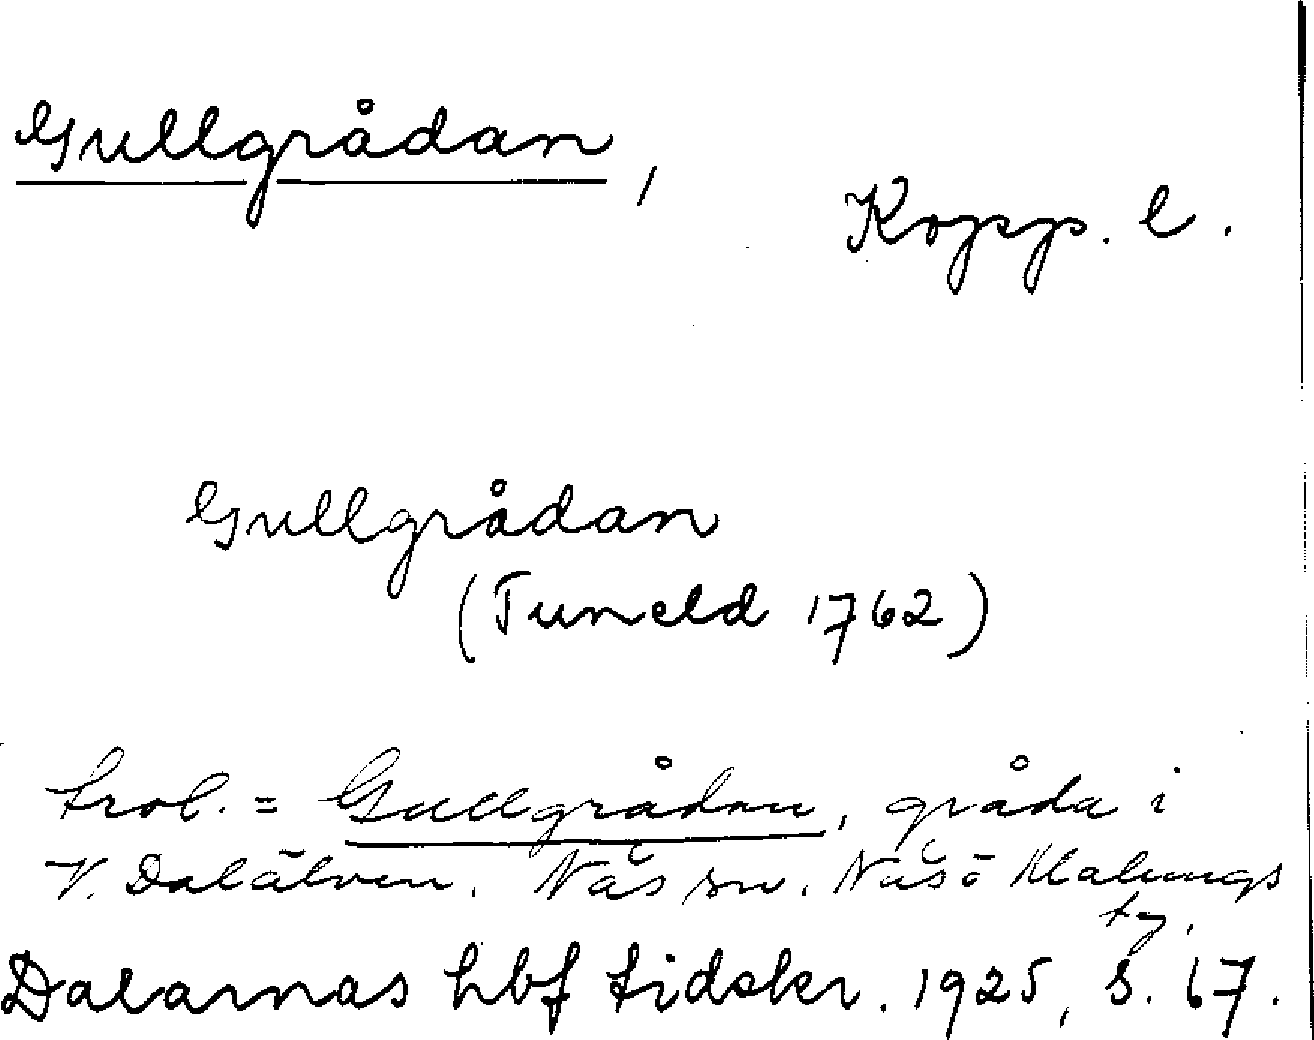 Gullgrådan,
Kopp. l.
Gullgrådan
(Tuneld 1762)
trol. = Gullgrådan, gråda i
V. Dalälven. Nås sn. Nås o Malungs
tg.
Dalarnas hbf tidskr. 1925, s. 67.